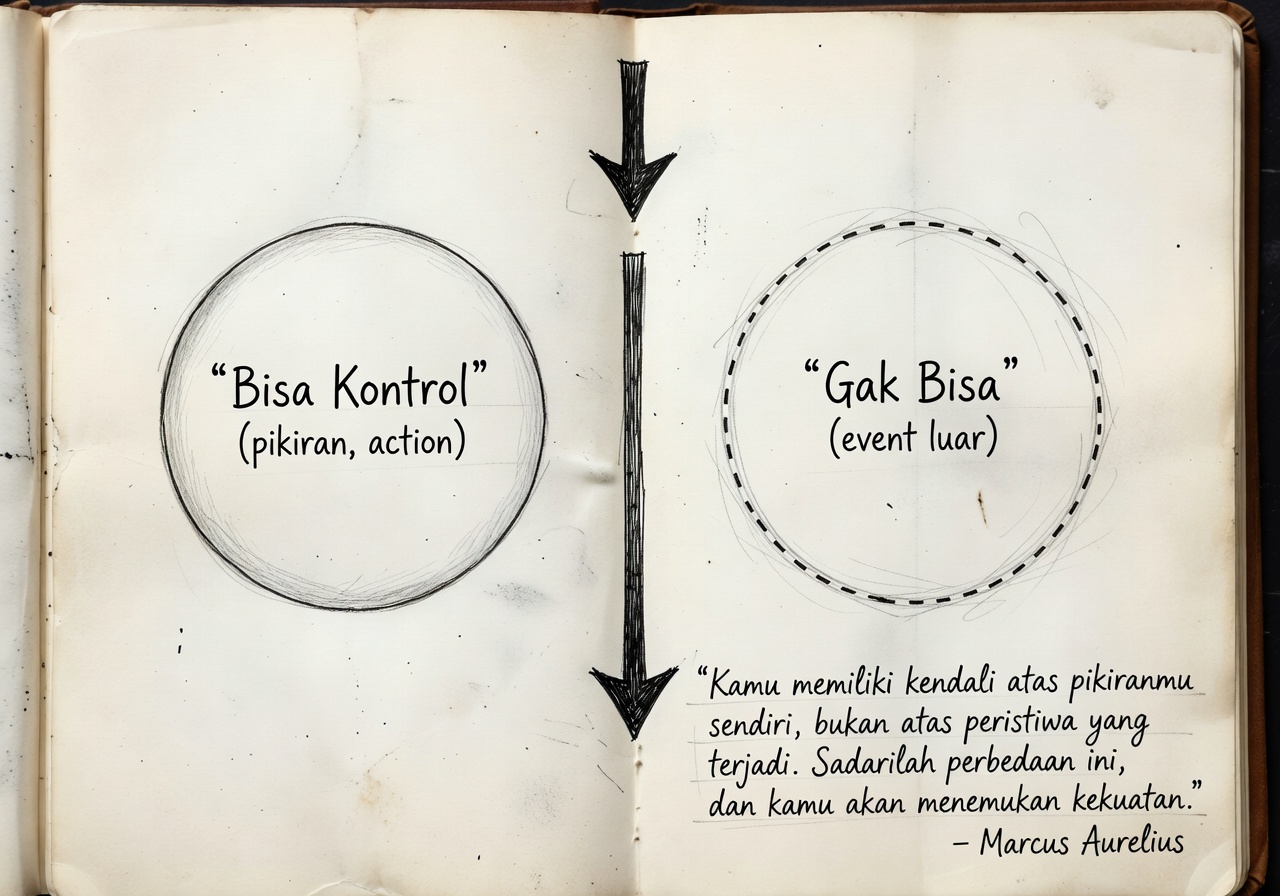 “Bisa Kontrol”
(pikiran, action)
“Gak Bisa”
(event luar)
“Kamu memiliki kendali atas pikiranmu
sendiri, bukan atas peristiwa yang
terjadi. Sadarilah perbedaan ini,
dan kamu akan menemukan kekuatan.”
– Marcus Aurelius